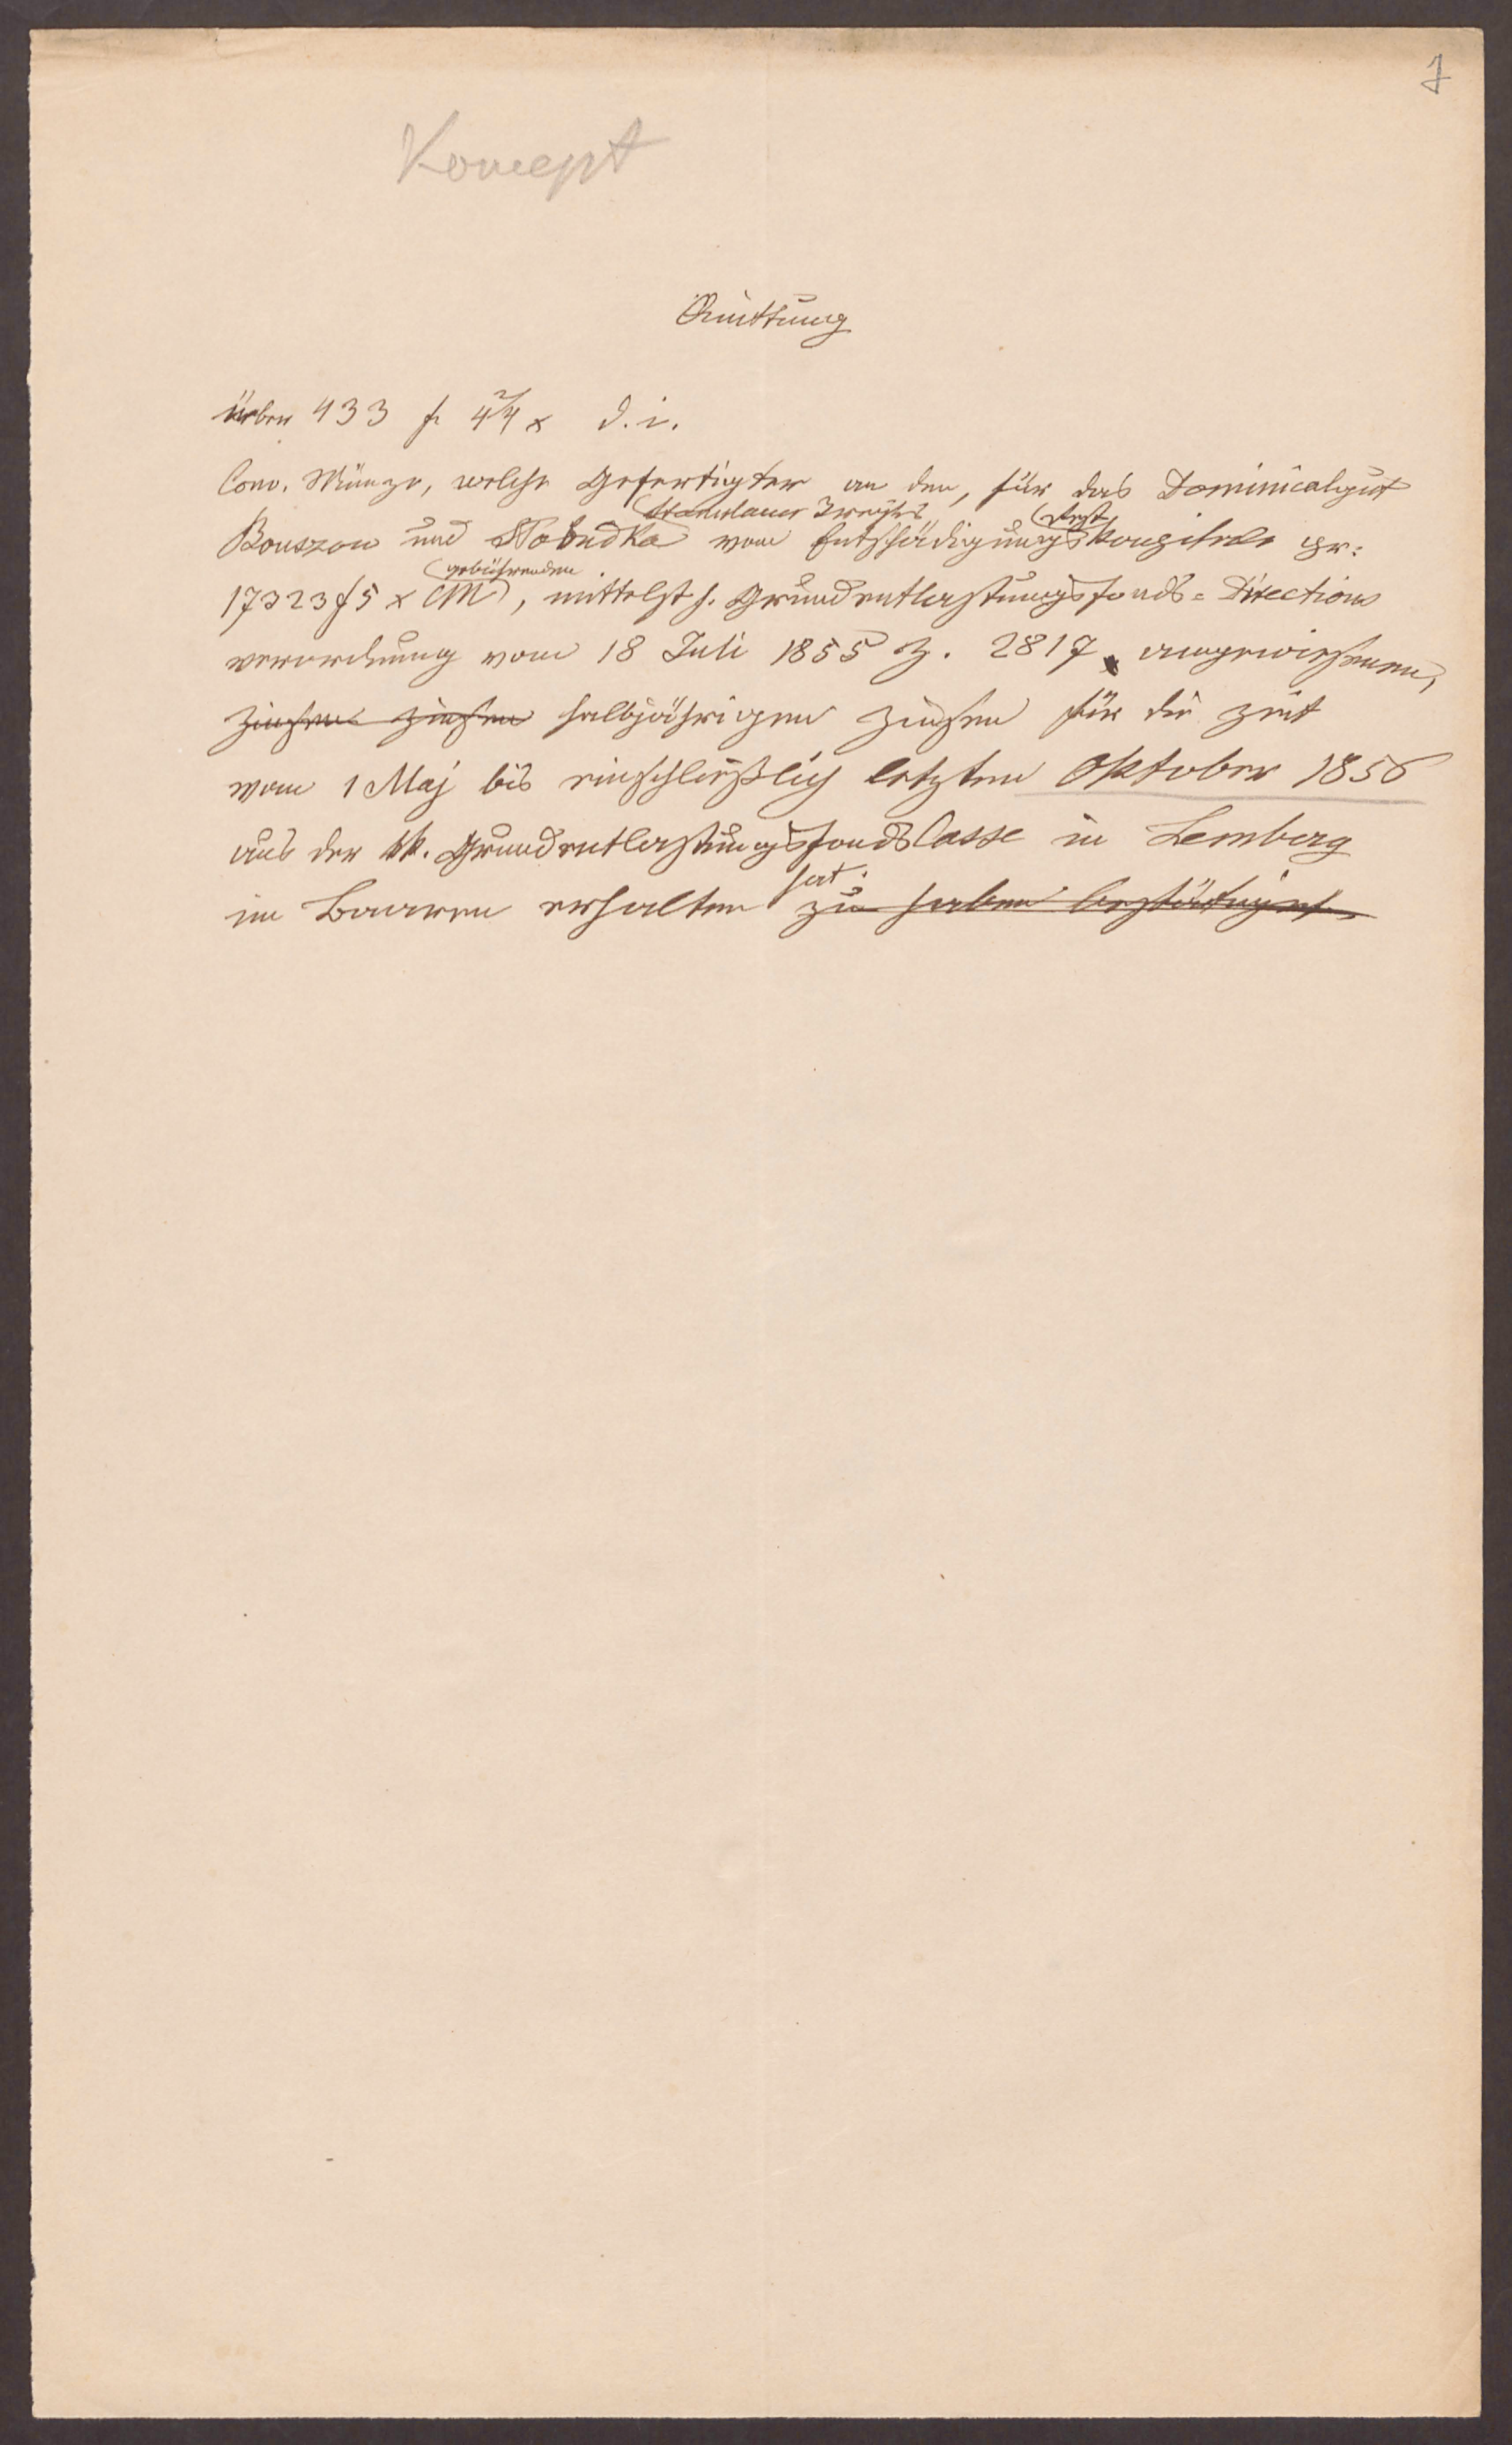 7
Koncept
Quittung
über 433 f 4 2/4 x d. i.
Conv. Münze, welche Gefertigter an den, für das Dominicalgut
Bouszow und Słobudka Stanislauer Kreises vom Entschädigungs Rest kapitale pr:
17323 f 5 x CM gebührenden, mittelst h. Grundentlastungsfonds-Directions
verordnung vom 18 Juli 1855 Z. 2817 angewiesenen,
Zinsen Zinsen halbjährigen Zinsen für die Zeit
vom 1 Maj bis einschließlich letzten Oktober 1856
aus der kk. Grundentlastungsfonds Casse in Lemberg
im Baaren erhalten hat. zu haben bestättiget.